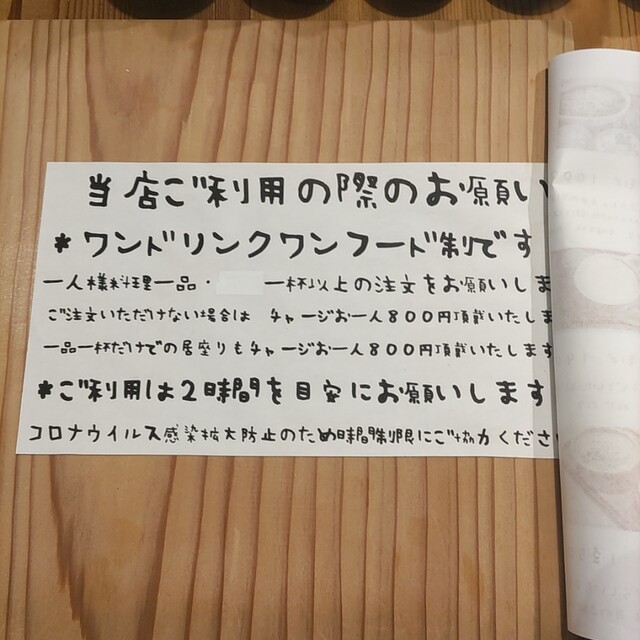 当店ご利用の際のお願い
*ワンドリンクワンフード制です
一人様料理一品・一杯以上の注文をお願いしま
ご注文いただけない場合は チャージお一人800円頂戴いたしま
一品一杯だけでの居座りもチャージお一人800円頂戴いたします
*ご利用は2時間を目安にお願いします
コロナウイルス感染拡大防止のため時間制限にご協力くださ